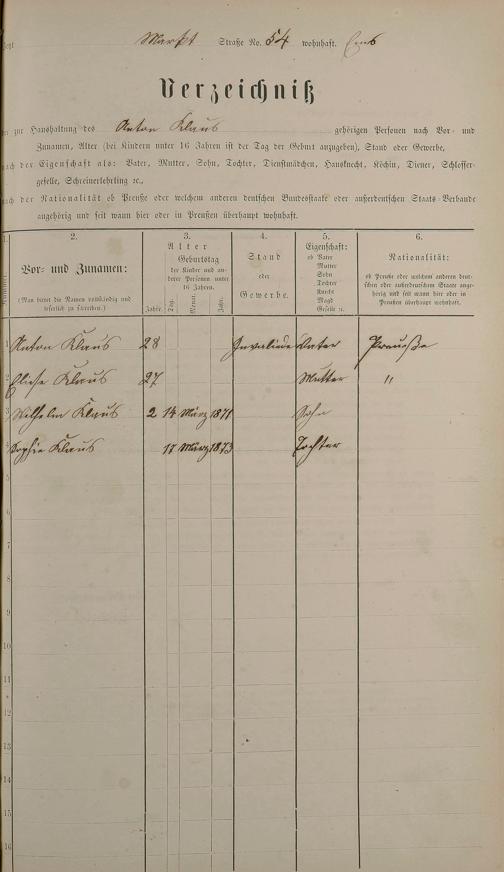 Markt Straße No. 54 wohnhaft. Ems
Verzeichniß
der zur Haushaltung des Anton Klaus gehörigen Personen nach Vor- und
Zunamen, Alter (bei Kindern unter 16 Jahren ist der Tag der Geburt anzugeben), Stand oder Gewerbe,
nach der Eigenschaft als: Vater, Mutter, Sohn, Tochter, Dienstmädchen, Hausknecht, Köchin, Diener, Schlosser-
geselle, Schreinerlehrling ꝛc.,
nach der Nationalität ob Preuße oder welchem anderen deutschen Bundesstaate oder außerdeutschen Staats-Verbande
angehörig und seit wann hier oder in Preußen überhaupt wohnhaft.
1. 2. 3. 4. 5. 6.
Vor- und Zunamen:
(Man bittet die Namen vollständig und
leserlich zu schreiben.)
Alter
Geburtstag
der Kinder und an-
derer Personen unter
16 Jahren.
Jahre. Tag. Monat. Jahr.
Stand
oder
Gewerbe.
Eigenschaft:
ob Vater
Mutter
Sohn
Tochter
Knecht
Magd
Geselle ꝛc.
Nationalität:
ob Preuße oder welchem anderen deut-
schen oder außerdeutschen Staate ange-
hörig und seit wann hier oder in
Preußen überhaupt wohnhaft.
1 Anton Klaus 28 Invalide Vater Preuße
2 Eliese Klaus 27 Mutter "
3 Wilhelm Klaus 2 14 März 1871 Sohn
4 Sophie Klaus 17 März 1873 Tochter
5
6
7
8
9
10
11
12
13
14
15
16